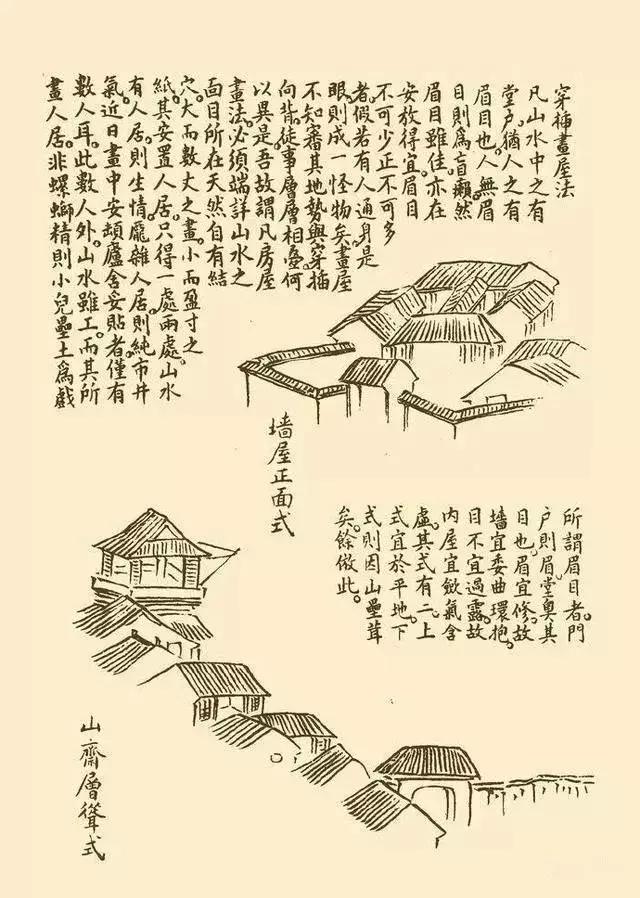 穿插畫屋法
凡山水中之有
堂戶猶人之有
眉目也人無眉
目則為盲癩然
眉目雖佳亦在
安放得宜眉目
不可少正不可多
者假若有人通身是
眼則成一怪物矣畫屋
不知審其地勢與穿插
向背徒事層層相疊何
以異是吾故謂凡房屋
畫法必須端詳山水之
面目所在天然自有結
穴大而數丈之畫小而盈寸之
紙其安置人居只得一處兩處山水
有人居則生情龐雜人居則純市井
氣近日畫中安頓廬舍妥貼者僅有
數人耳此數人外山水雖工而其所
畫人居非螺螄精則小兒壘土為戲
墻屋正面式
所謂眉目者門
戶則眉堂奧其
目也眉宜修故
墻宜委曲環抱
目不宜過露故
內屋宜斂氣含
虛其式有二上
式宜於平地下
式則因山壘茸
矣餘倣此
山齋層聳式